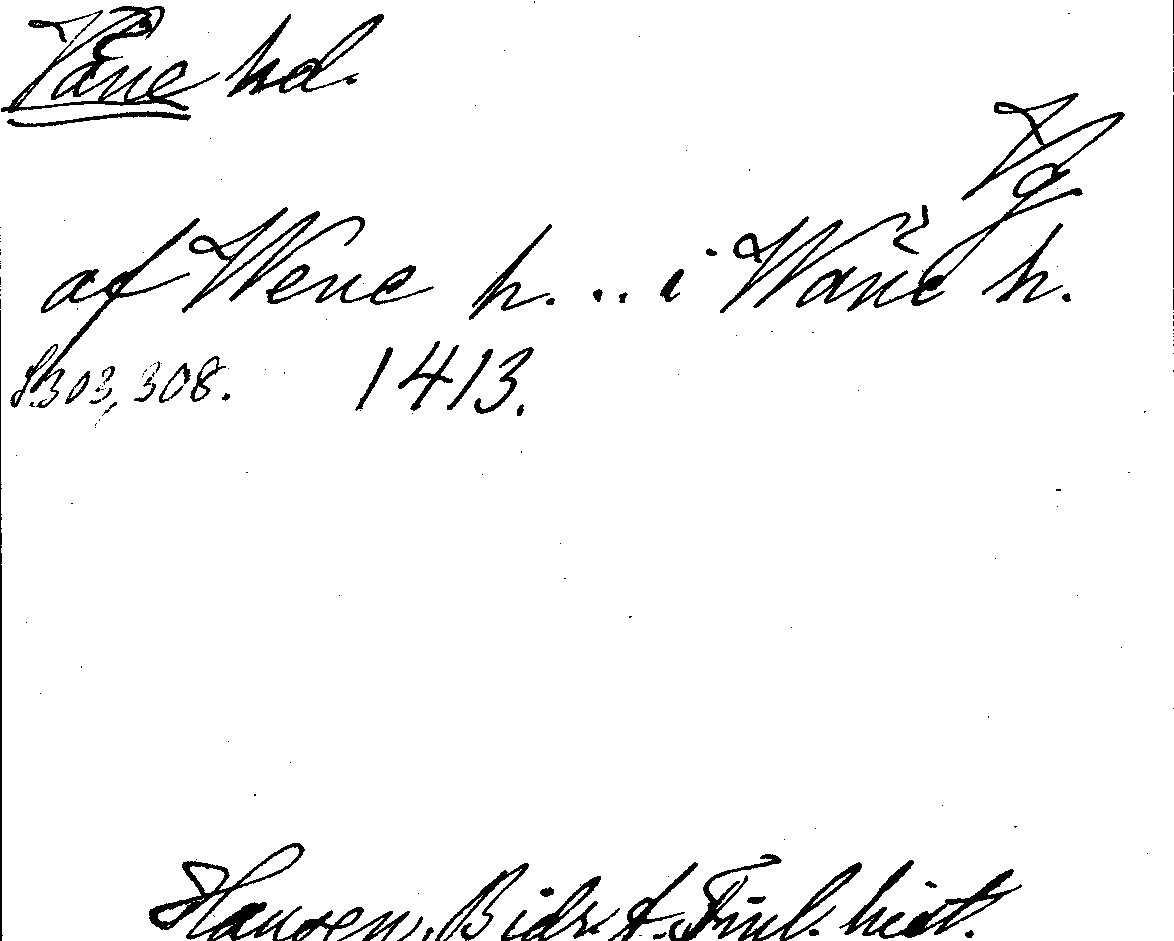 Våne hd.
Vg
af Wene h. .. i Wane h.
S. 303, 308. 1413.
Hausen, Bidr. t. Finl. hist.